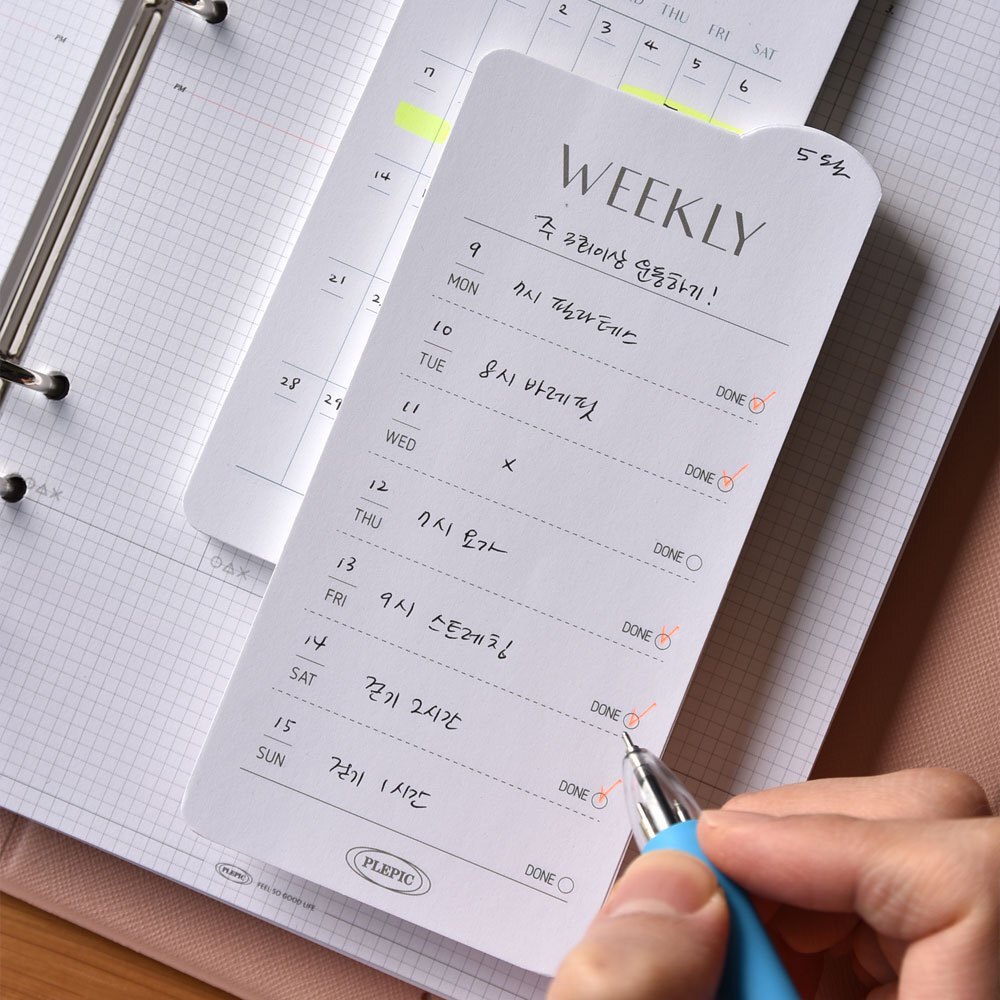 PM
PM
THU FRI SAT
2 3 4 5 6
7
14
21
28 29
5월
WEEKLY
주 3회이상 운동하기!
9
MON 7시 필라테스
DONE
10
TUE 8시 바레핏
DONE
11
WED x
DONE
12
THU 7시 요가
DONE
13
FRI 9시 스트레칭
DONE
14
SAT 걷기 2시간
DONE
15
SUN 걷기 1시간
DONE
PLEPIC
PLEPIC FEEL SO GOOD LIFE